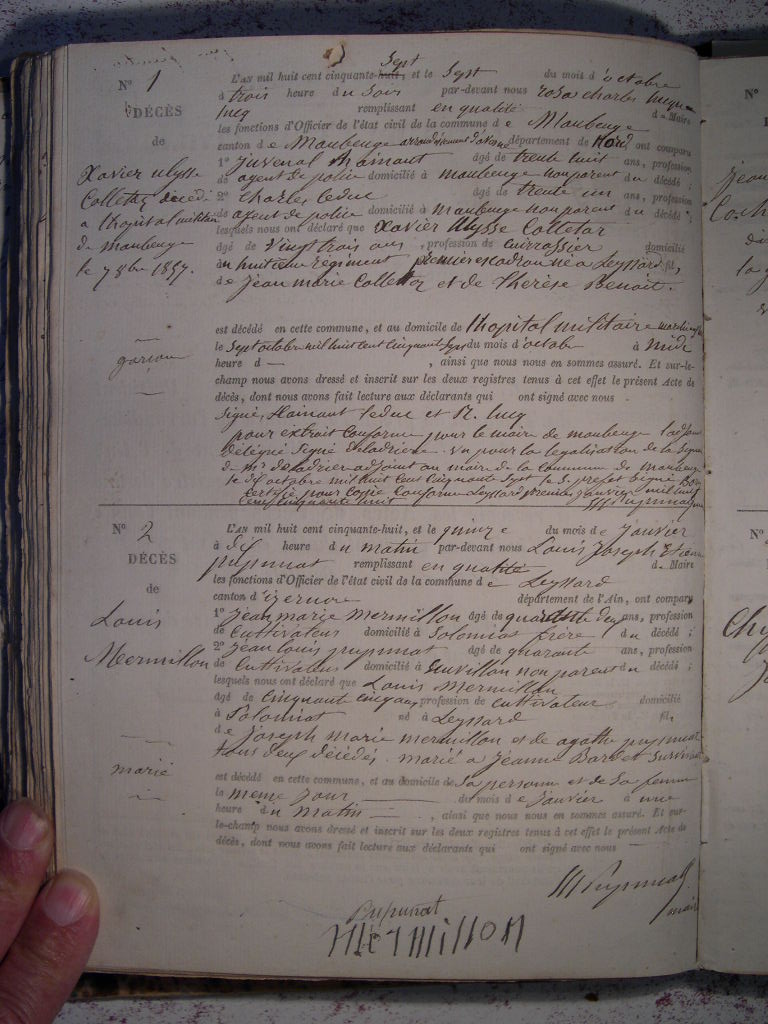 N° 1
DÉCÈS
de
Xavier ulysse
Colletaz décédé
a lhopital militaire
de maubeuge
le 7 8bre 1857.
garçon
L'AN mil huit cent cinquante-huit, Sept et le Sept du mois d'octobre
à trois heure du Soir par-devant nous rosa charles
lucq remplissant en qualité de Maire
les fonctions d'Officier de l'état civil de la commune de Maubeuge
canton de Maubeuge arrondissement d'avesne département de Nord ont comparu
1° juvenal hainaut âgé de trente huit ans, profession
de agent de police domicilié à maubeuge non parent du décédé ;
2° charles leduc âgé de trente un ans, profession
de agent de police domicilié à maubeuge non parent du décédé ;
lesquels nous ont déclaré que Xavier Ulysse Colletaz
âgé de vingt trois ans, profession de cuirassier domicilié
au huitieme régiment premier escadron né a Leyssard fils
de Jean marie Colletaz et de Thérèse Benoit.
est décédé en cette commune, et au domicile de l'hopital militaire
le Sept octobre mil huit cent cinquante Sept du mois d'octobre à midi
heure d , ainsi que nous nous en sommes assuré. Et sur-le-
champ nous avons dressé et inscrit sur les deux registres tenus à cet effet le présent Acte de
décès, dont nous avons fait lecture aux déclarants qui ont signé avec nous
Signé, Hainaut leduc et R. lucq
pour extrait conforme pour le maire de maubeuge l'adjoint
délégué Signé Deladrière. vu pour la légalisation de la signa
de mr deladrier adjoint au maire de la commune de maubeuge
le dix octobre mil huit cent cinquante Sept le S. prefet Signé
certifié pour copie conforme Leyssard premier janvier mil huit
cent cinquante huit
N° 2
DÉCÈS
de
Louis
Mermillon
marié
L'AN mil huit cent cinquante-huit, et le quinze du mois de Janvier
à dix heure du matin par-devant nous Louis Joseph Etienne
pupunat remplissant en qualité de Maire
les fonctions d'Officier de l'état civil de la commune de Leyssard
canton d'izernore département de l'Ain, ont comparu
1° jean marie mermillon âgé de quarante deux ans, profession
de cultivateur domicilié à Solomiat frère du décédé ;
2° jean louis pupunat âgé de quarante ans, profession
de cultivateur domicilié à non parent du décédé ;
lesquels nous ont déclaré que Louis mermillon
âgé de cinquante cinq ans, profession de cultivateur domicilié
à Solomiat né à Leyssard fils
de joseph marie mermillon et de agathe pupunat
tous deux décédés. marié a jeanne Bardet survivante
est décédé en cette commune, et au domicile de sa personne et de Sa femme
le meme jour du mois de janvier à une
heure du matin , ainsi que nous nous en sommes assuré. Et sur-
le-champ nous avons dressé et inscrit sur les deux registres tenus à cet effet le présent Acte de
décès, dont nous avons fait lecture aux déclarants qui ont signé avec nous
Pupunat
maire
Pupunat
Mermillon
N°
N°